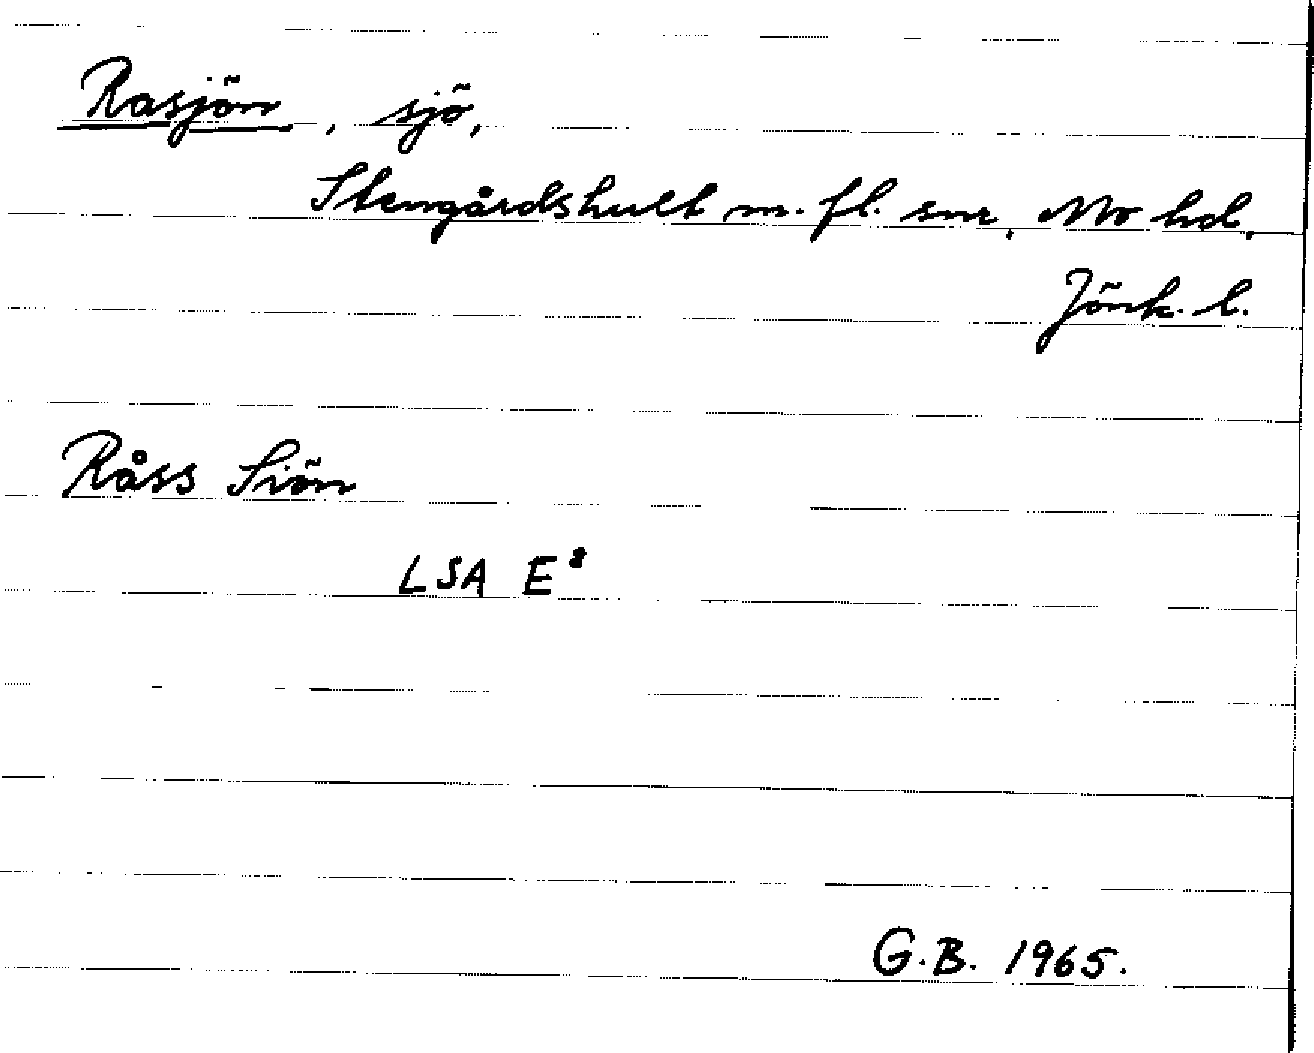 Rasjön, sjö,
Stengårdshult m. fl. snr, Mo hd,
Jönk. l.
Råss Siön
LSA E⁸
G.B. 1965.